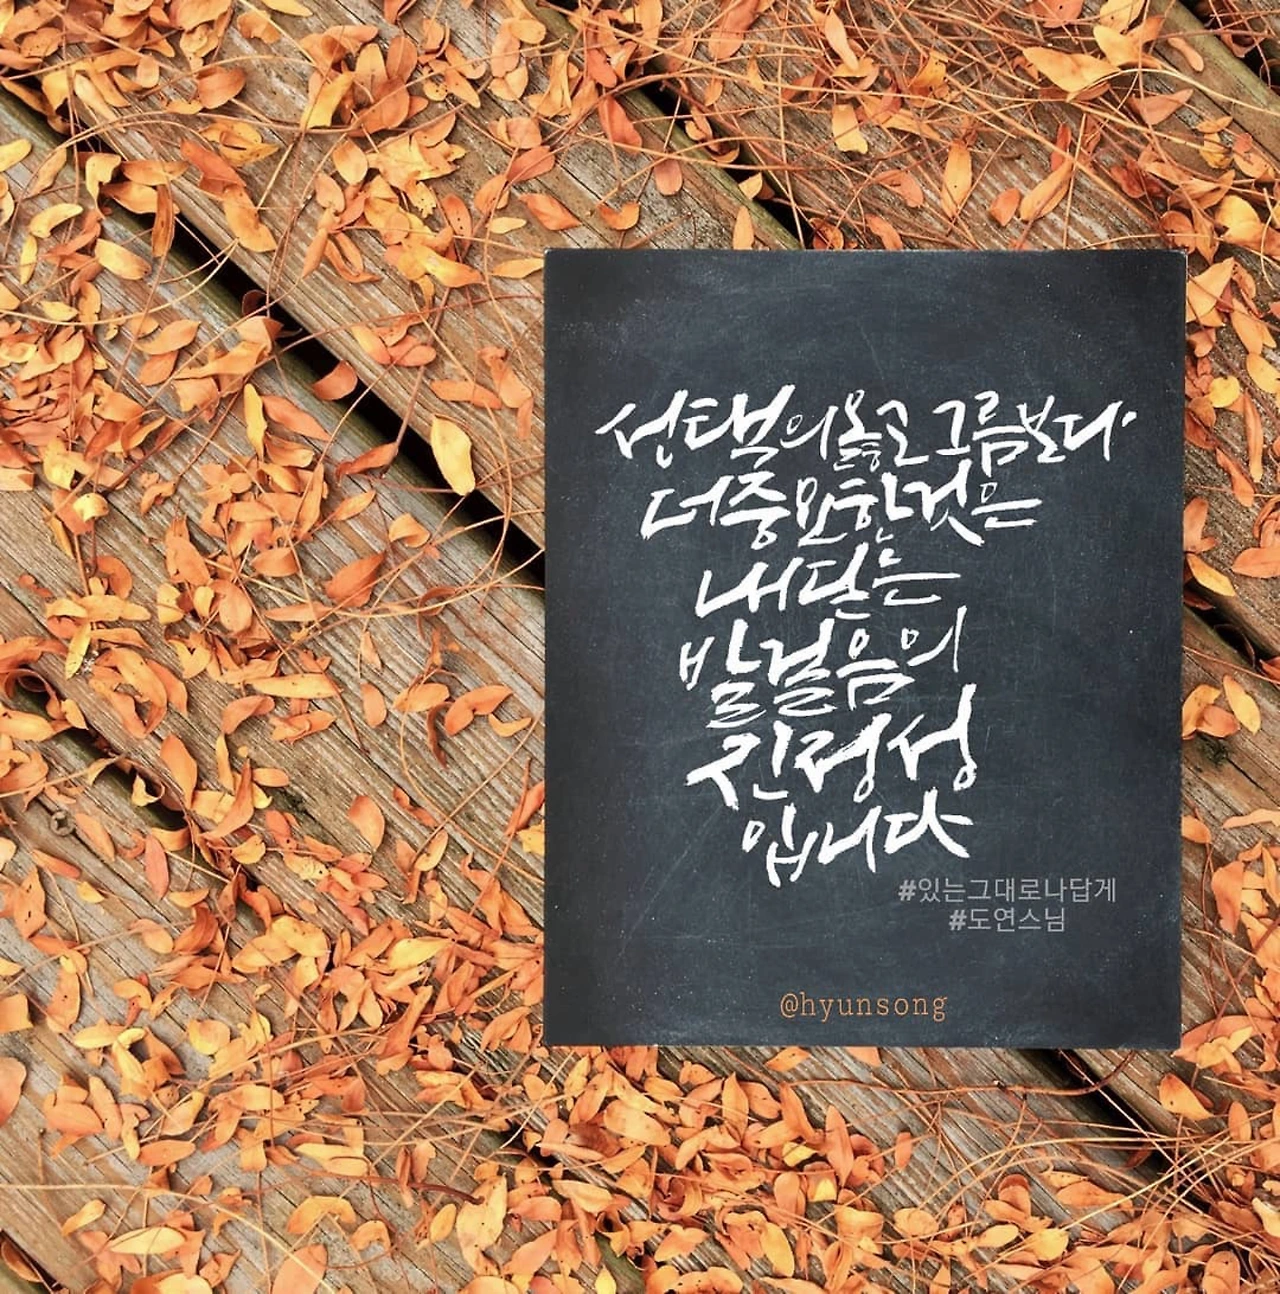 선택의 옳고 그름보다
더 중요한 것은
내딛는
발걸음의
진정성
입니다
#있는그대로나답게
#도연스님
@hyunsong